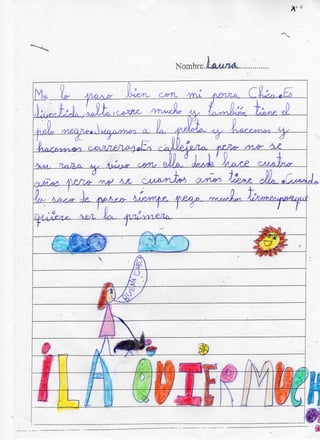 Nombre: Laura
Me lo paso bien con mi perra Chica.Es
divertida, salta, corre mucho y también tiene el
pelo negro.Jugamos a la pelota y hacemos y
hacemos carreras.Es callejera pero no se
su raza y vive con ella desde hace cuatro
años pero no se cuantos años tiene ella.Cuando
la saco de paseo siempre pega muchos tirones porque
quiere ser la primera.
BUENA CHICA
¡LA QUIERO MUCH